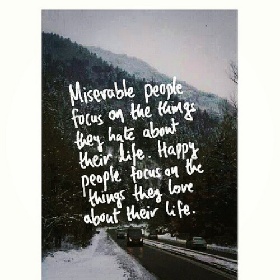 Miserable people
focus on the things
they hate about
their life. Happy
people focus on the
things they love
about their life.